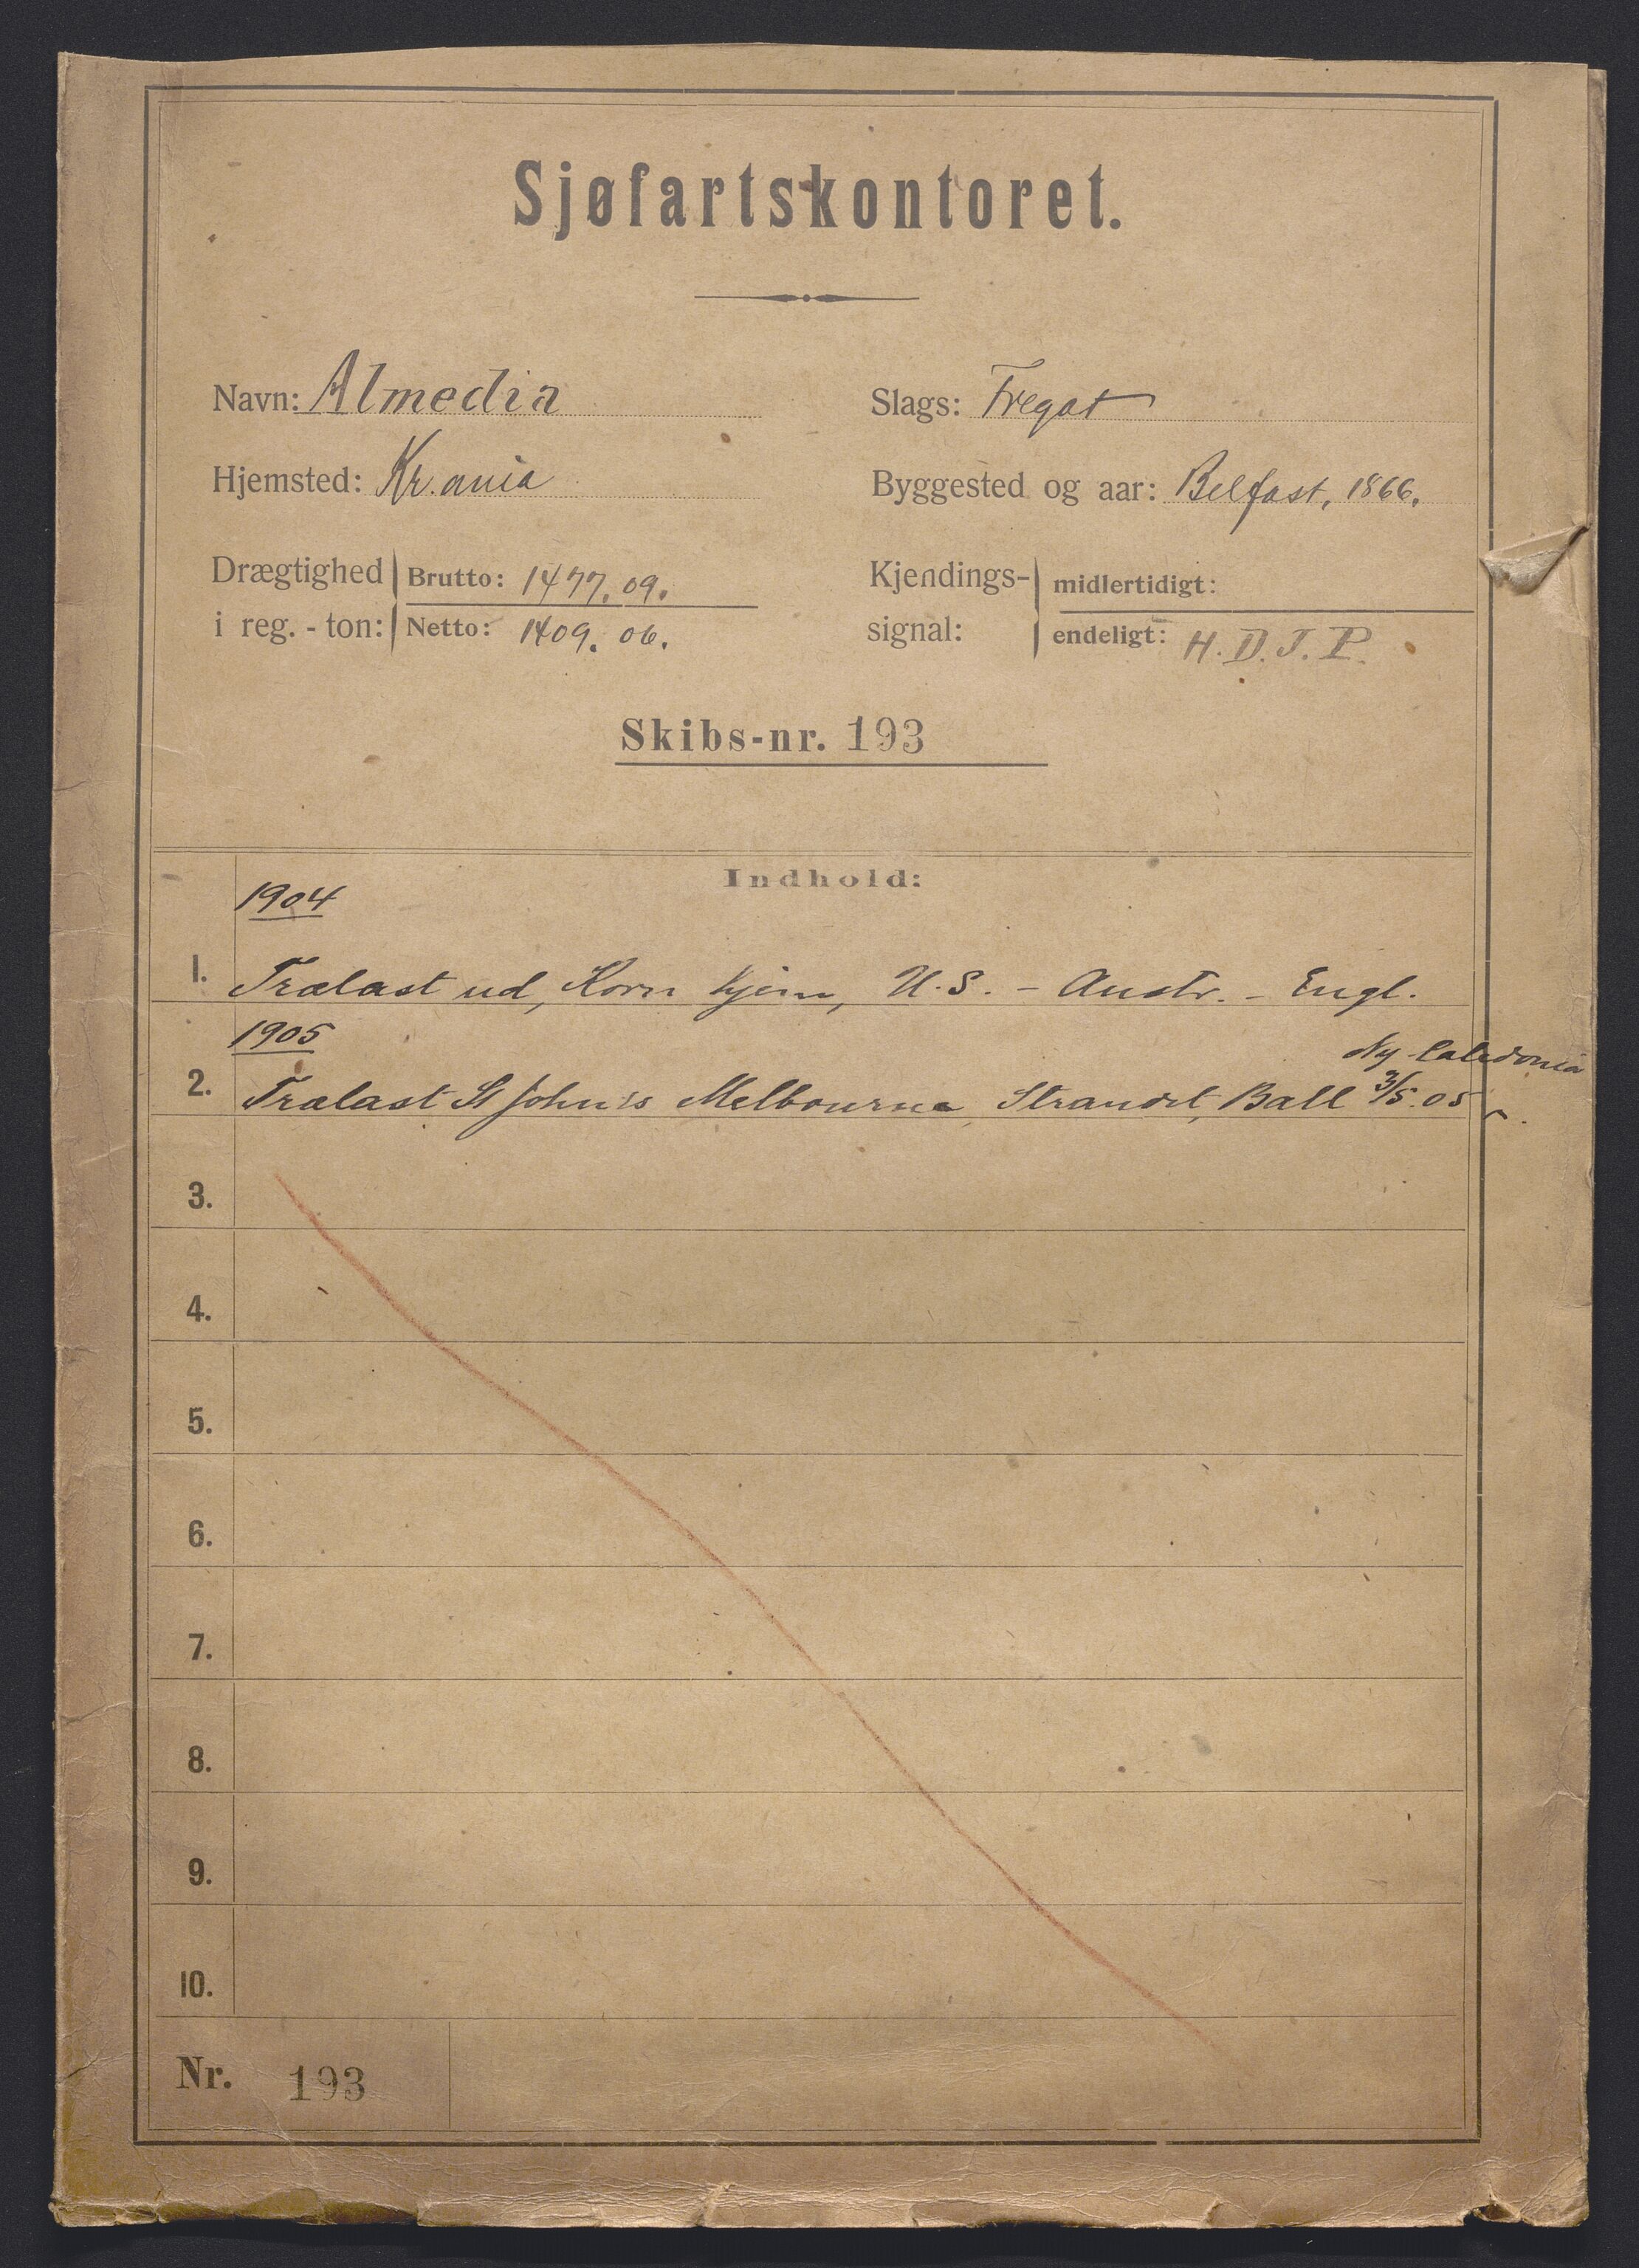 Sjøfartskontoret.
Navn: Almedia
Slags: Fregat
Hjemsted: Kr.ania
Byggested og aar: Belfast, 1866.
Drægtighed i reg.-ton: Brutto: 1477.09.
Netto: 1409.06.
Kjendings-signal: midlertidigt:
endeligt: H.D.J.P.
Skibs-nr. 193
Indhold:
1904
1. Trælast ud, Korn hjem, U.S. - Austr. - Engl.
1905
Ny Caledonia
2. Trælast St John's Melbourne, Strandet, Ball 3/5.05
3.
4.
5.
6.
7.
8.
9.
10.
Nr. 193